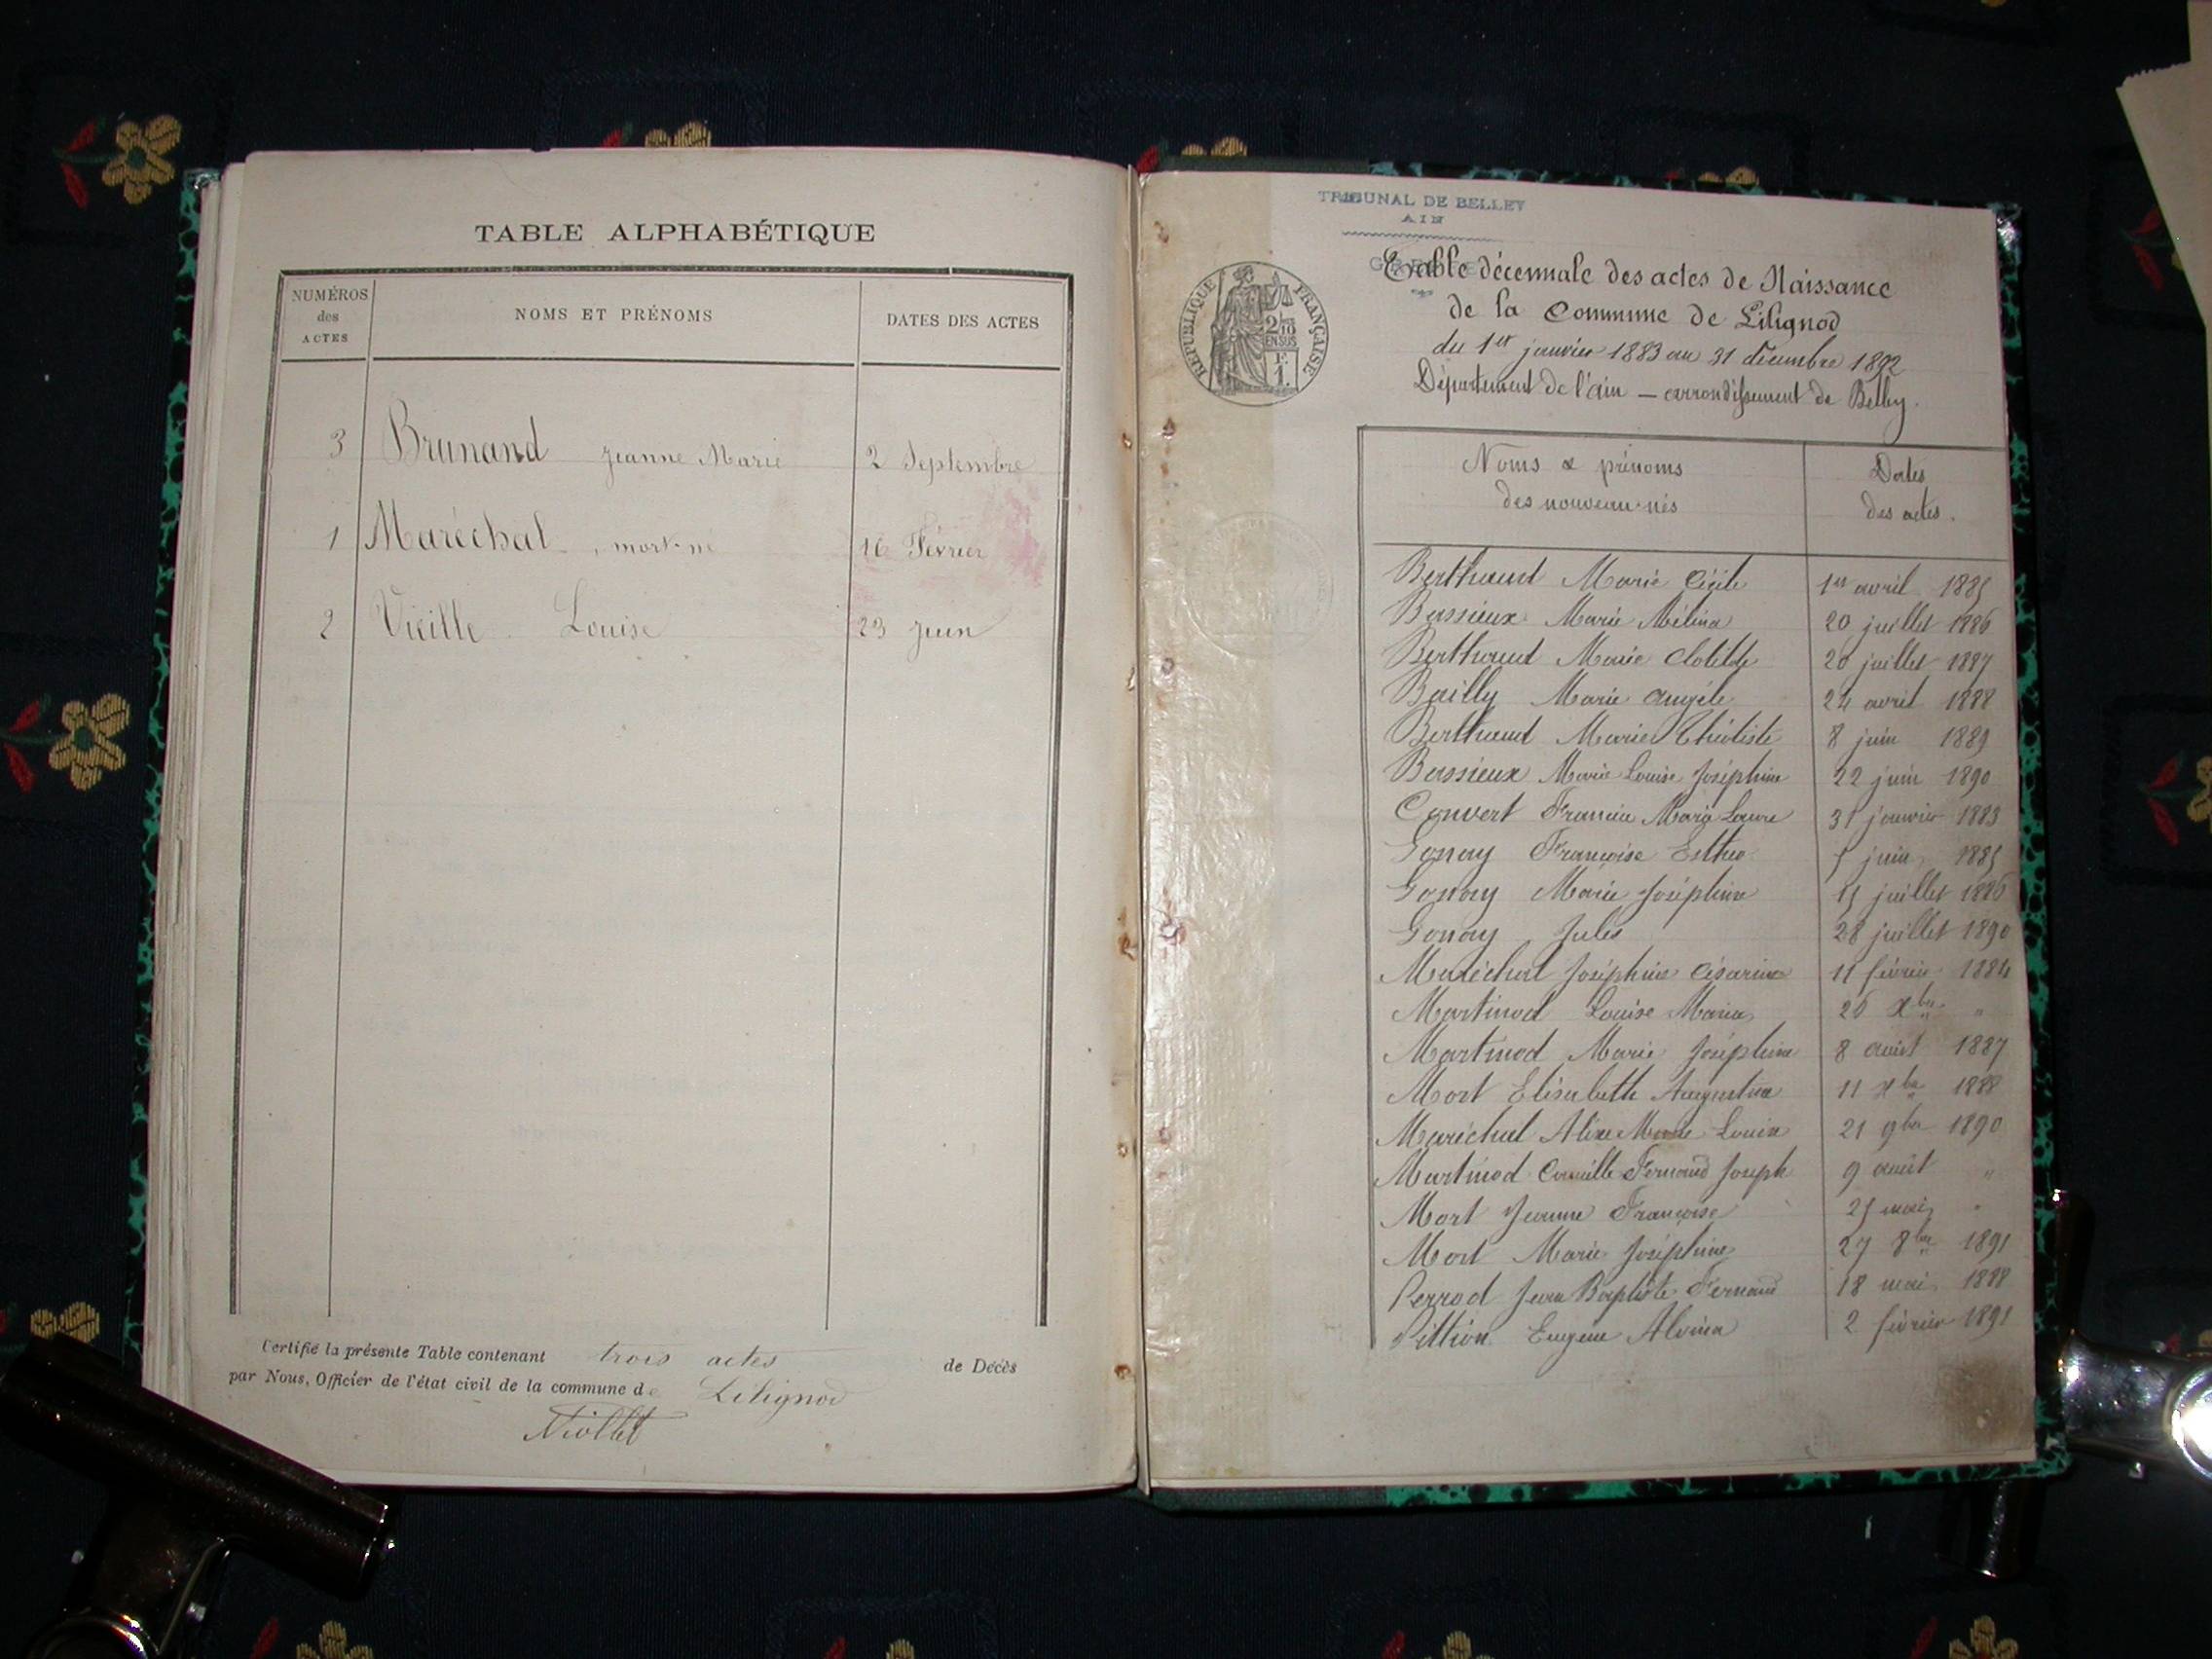 TABLE ALPHABÉTIQUE
NUMÉROS des ACTES NOMS ET PRÉNOMS DATES DES ACTES
3 Brunand Jeanne Marie 2 Septembre
1 Maréchal, mort-né 16 Février
2 Vieille Louise 23 juin
Certifié la présente Table contenant trois actes de Décès
par Nous, Officier de l'état civil de la commune de Lilignod
TRIBUNAL DE BELLEY
AIN
RÉPUBLIQUE FRANÇAISE
2/10 EN SUS
1 F.
Table décennale des actes de Naissance
de la Commune de Lilignod
du 1er janvier 1883 au 31 décembre 1892
Département de l'ain — arrondissement de Belley.
Noms & prénoms Dates
des nouveau-nés des actes.
Berthaud Marie Cécile 1er avril 1885
Bussieux Marie Mélina 20 juillet 1886
Berthaud Marie Clotilde 20 juillet 1887
Bailly Marie Angèle 24 avril 1888
Berthaud Marie Théotiste 8 juin 1889
Bussieux Marie Louise Joséphine 22 juin 1890
Convert Francia Marie Laure 31 janvier 1883
Gonay Françoise Esther 5 juin 1885
Gonay Marie Joséphine 15 juillet 1886
Gonay Jules 28 juillet 1890
Maréchal Joséphine Césarine 11 février 1884
Martinod Louise Maria 26 Xbre "
Martinod Marie Joséphine 8 août 1887
Mort Elisabeth Augustine 11 Xbre 1888
Maréchal Aline Marie Louise 21 9bre 1890
Martinod Camille Fernand Joseph 9 août "
Mort Jeanne Françoise 25 mai "
Mort Marie Joséphine 27 8bre 1891
Perrod Jean Baptiste Fernand 18 mai 1888
Pittion Eugène Alvina 2 février 1891